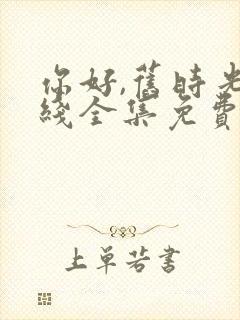 你好,舊時光
綫全集免費
上單若書